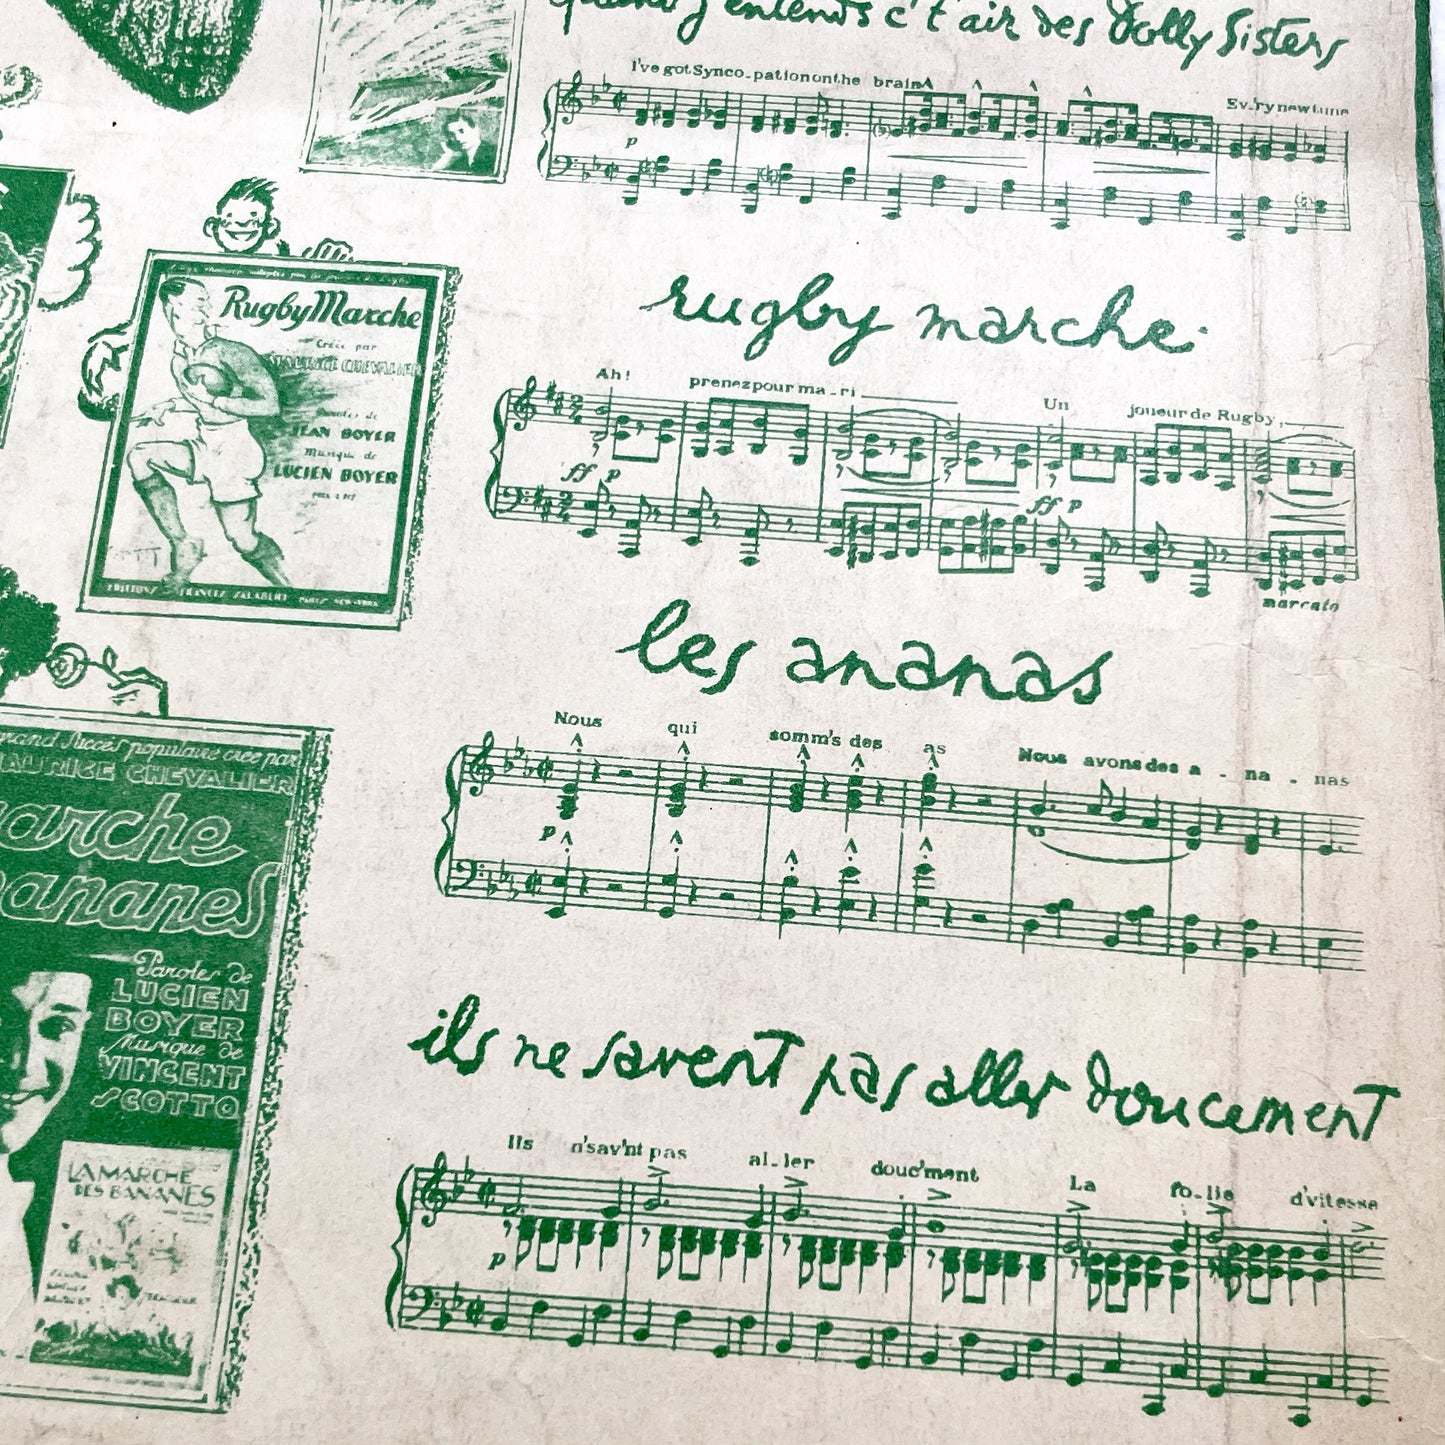 quand j'entends c't'air des Dolly Sisters
I've got Synco-pation on the brain
Ev'ry new tune
p
rugby marche
Rugby Marche
Créée par
MAURICE CHEVALIER
Paroles de
JEAN BOYER
Musique de
LUCIEN BOYER
EDITIONS FRANCIS SALABERT PARIS NEW-YORK
Ah! prenez pour ma-ri Un joueur de Rugby,
ff p ff p
marcato
les ananas
Nous qui somm's des as Nous avons des a-na-nas
p
grand Succès populaire créé par
MAURICE CHEVALIER
marche
bananes
Paroles de
LUCIEN
BOYER
Musique de
VINCENT
SCOTTO
LA MARCHE
DES BANANES
ils ne savent pas aller doucement
Ils n'sav'nt pas al-ler douc'ment La fo-lie d'vitesse
p